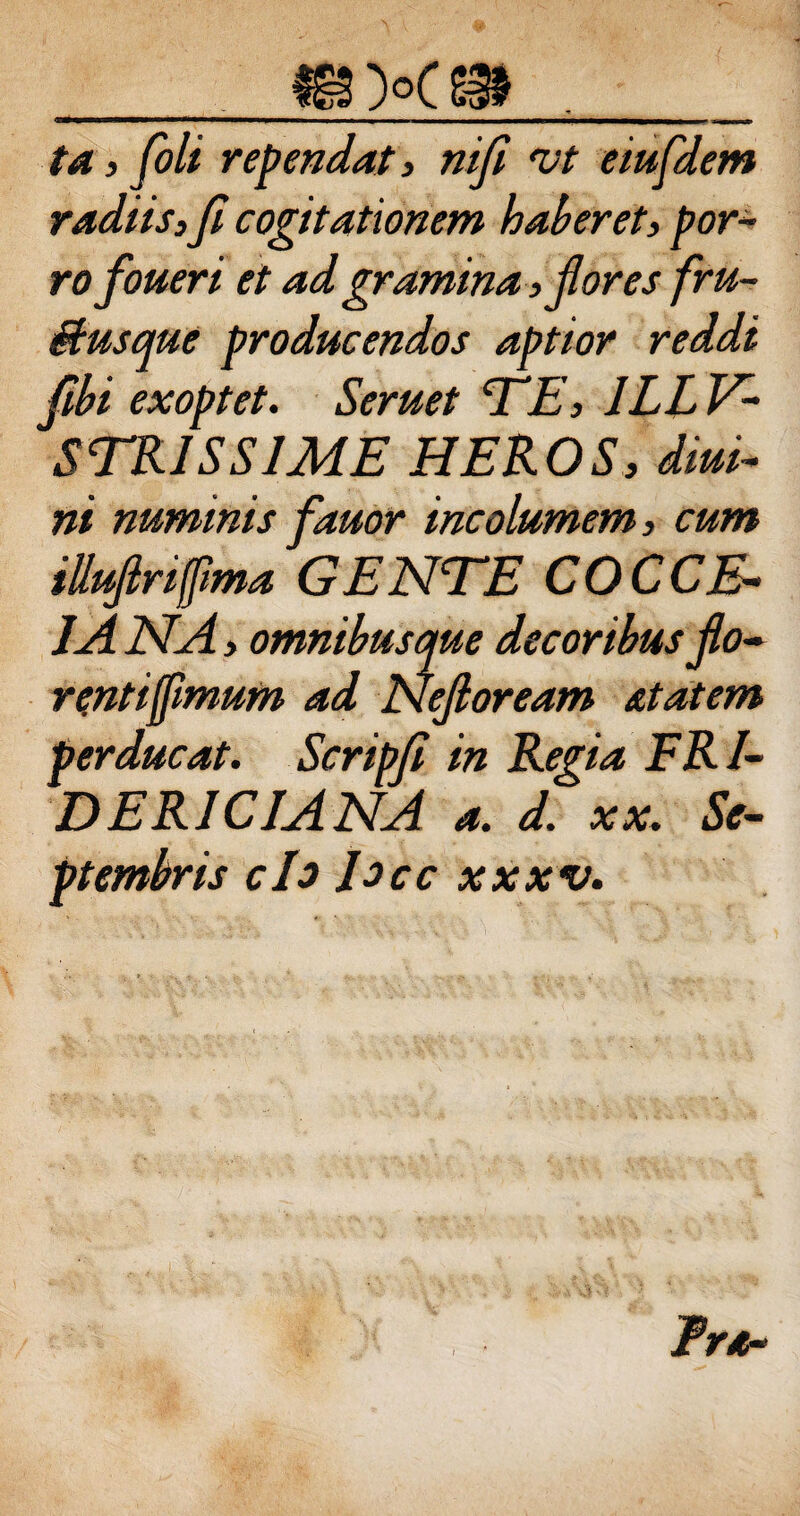 )o(
ta, ſoli rependat, niſi vt eiuſdem
radiis, ſi cogitationem haberet, por-
ro foueri et ad gramina, flores fru-
ctusque producendos aptior reddi
ſibi exoptet. Seruet TE, ILLV-
STRISSIME HEROS, diui-
ni numinis fauor incolumem, cum
illuſtriſſima GENTE COCCE-
IANA, omnibusque decoribus flo-
rentiſſimum ad Neſtoream ætatem
perducat. Scripſi in Regia FRI-
DERICIANA a. d. xx. Se-
ptembris cIɔ Iɔcc xxxv.
Præ-